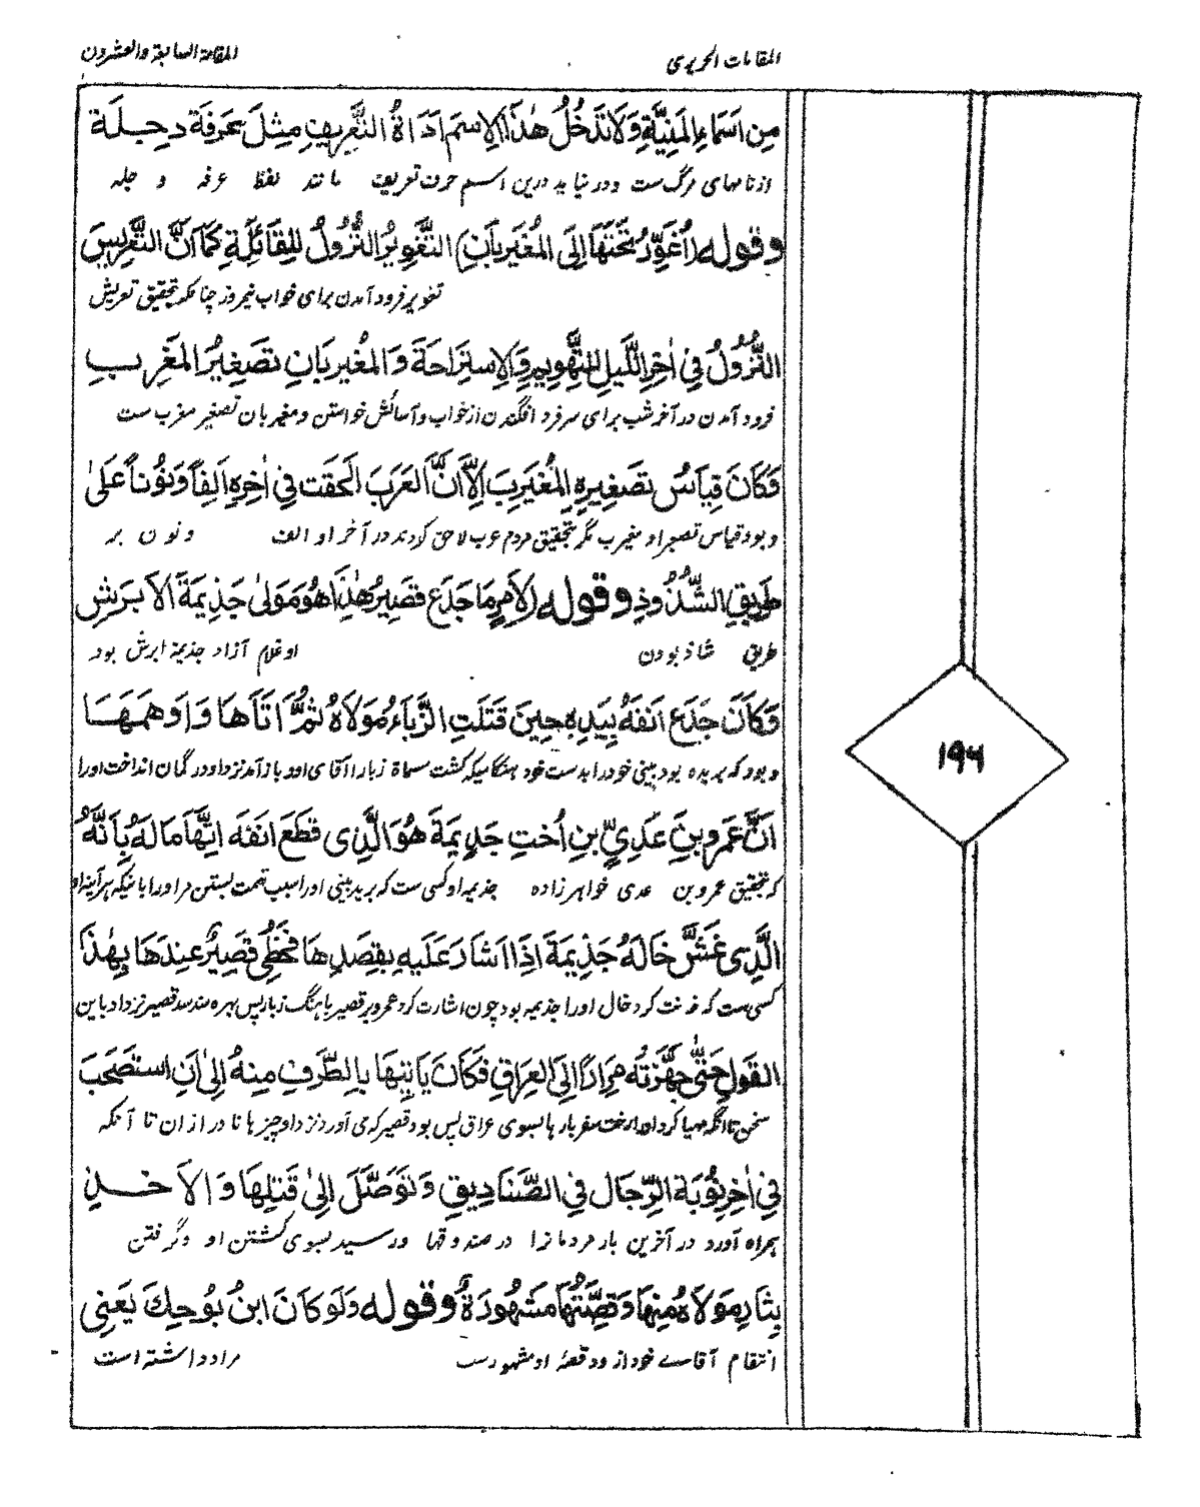 المقامات الحريري
المقامة السابعة والعشرون
مِن اَسمَاءِ المَنِيَّةِ وَلَا تَدخُلُ هٰذَا الاِسمَ اَدَاةُ التَّعرِيفِ مِثلَ عَرَفَةَ دجلَة
از نامهای مرگ ست ودر نیاید درین اسم حرف تعریف مانند لفظ عرفه و جله
وقوله اُغَوِّرُ تَحتَهَا اِلَى المُغَيرِبَانِ التَّغوِيرُ النُّزُولُ لِلقَائِلَةِ كَمَا اَنَّ التَّعرِيسَ
تغویر فرود آمدن برای خواب نیمروز چنانکه بتحقیق تعریش
النُّزُولُ فِي اٰخِرِ اللَّيلِ لِلتَّهوِيمِ وَالاِستِرَاحَةَ وَالمُغَيرِبَانِ تَصغِيرُ المَغرِبِ
فرود آمدن در آخر شب برای سر فرد افگندن از خواب وآسائش خواستن ومغیربان تصغیر مغرب ست
فَكَانَ قِيَاسُ تَصغِيرِهٖ المُغَيرِبَ اِلَّا اَنَّ العَرَبَ اَلحَقَت فِي اٰخِرِهٖ اَلِفاً وَنُوناً عَلىٰ
وبود قیاس تصغیر او مغیرب مگر بتحقیق مردم عرب لاحق کردند در آخر او الف ونون بر
طَرِيقِ الشُّذُوذِ وقوله لِاَمرٍ مَا جَدَعَ قَصِيرُ هٰذَا هُوَ مَولىٰ جَذِيمَةَ الاَبرَشِ
طریق شاذ بودن او غلام آزاد جذیمة ابرش بود
فَكَانَ جَدَعَ اَنفَهُ بِيَدِهٖ حِينَ قَتَلَتِ الزَّبَاءُ مَولَاهُ ثُمَّ اَتَاهَا وَاَوهَمَهَا
وبود که بریده بود بینی خود را بدست خود هنگامیکه کشت مسماة زبا را آقای او و باز آمد نزد او در گمان انداخت او را
اَنَّ عَمرَو بنَ عَدِيِّ بنِ اُختِ جَذِيمَةَ هُوَ الَّذِى قَطَعَ اَنفَه اِتِّهَامًا لَهُ بِاَنَّهُ
که بتحقیق عمرو بن عدی خواهر زاده جذیمه او کسی ست که برید بینی او را بسبب تهمت بستن مر او را بانیکه هر آینه او
الَّذِى غَشَّ خَالَهُ جَذِيمَةَ اِذَا اَشَارَ عَلَيهِ بِقَصدِهَا فَحَظِيَ قَصِيرٌ عِندَهَا بِهٰذَا
کسی ست که خیانت کرد خال او را جذیمه بود چون اشارت کرد عمرو بر قصیر بآهنگ زبا پس بهره مند شد قصیر نزد او باین
القَولِ حَتّٰى جَهَّزَتهُ مِرَارًا اِلَى العِرَاقِ فَكَانَ يَاتِيهَا بِالطُّرَفِ مِنهُ اِلىٰ اَنِ استَصحَبَ
سخن تا آنگه مهیا کرد او را رخت سفر بارها بسوی عراق پس بود قصیر که می آورد نزد او چیزها نادر از ان تا آنکه
فِي اٰخِرِ نُوبَةِ الرِّجَالِ فِي الصَّنَادِيقِ وَتَوَصَّلَ اِلىٰ قَتلِهَا وَالاَخذِ
بهمراه آورد در آخرین بار مردمانرا در صندوقها ورسید بسوی کشتن او وگرفتن
بِثَارِ مَولَاهُ مِنهَا وَقِصَّتُهَا مَشهُورَةٌ وقوله وَلَو كَانَ ابنُ بُوحِكَ يَعنِي
انتقام آقای خود از و وقصهٔ او مشهور ست مراد داشته است
۱۹۴